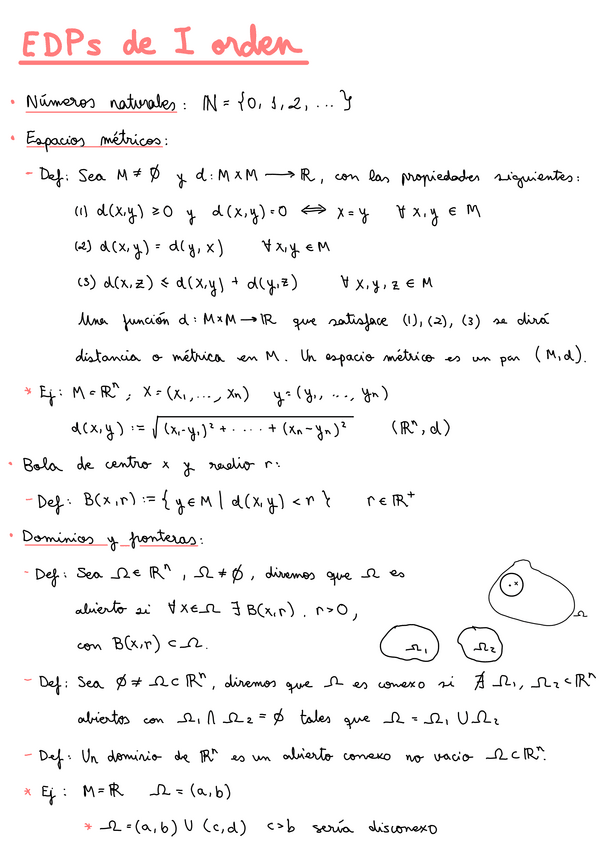 EDPs de I orden
• Números naturales: ℕ = {0, 1, 2, ...}
• Espacios métricos:
- Def: Sea M ≠ ∅ y d: M x M → ℝ, con las propiedades siguientes:
(1) d(x,y) ≥ 0 y d(x,y) = 0 ⟺ x = y ∀ x, y ∈ M
(2) d(x,y) = d(y,x) ∀ x,y ∈ M
(3) d(x,z) ≤ d(x,y) + d(y,z) ∀ x, y, z ∈ M
Una función d: M x M → ℝ que satisface (1), (2), (3) se dirá
distancia o métrica en M. Un espacio métrico es un par (M,d).
* Ej: M = ℝⁿ, x = (x₁, ..., xₙ) y = (y₁, ..., yₙ)
d(x,y) := √((x₁-y₁)² + .... + (xₙ-yₙ)²) (ℝⁿ, d)
• Bola de centro x y radio r:
- Def: B(x,r) := { y ∈ M | d(x,y) < r } r ∈ ℝ⁺
• Dominios y fronteras:
- Def: Sea Ω ∈ ℝⁿ, Ω ≠ ∅, diremos que Ω es
abierto si ∀ x ∈ Ω ∃ B(x,r), r > 0,
con B(x,r) ⊂ Ω.
x Ω
Ω₁ Ω₂
- Def: Sea ∅ ≠ Ω ⊂ ℝⁿ, diremos que Ω es conexo si ∄ Ω₁, Ω₂ ⊂ ℝⁿ
abiertos con Ω₁ ∩ Ω₂ = ∅ tales que Ω = Ω₁ ∪ Ω₂
- Def: Un dominio de ℝⁿ es un abierto conexo no vacio Ω ⊂ ℝⁿ.
* Ej: M = ℝ Ω = (a,b)
* Ω = (a,b) ∪ (c,d) c>b sería disconexo